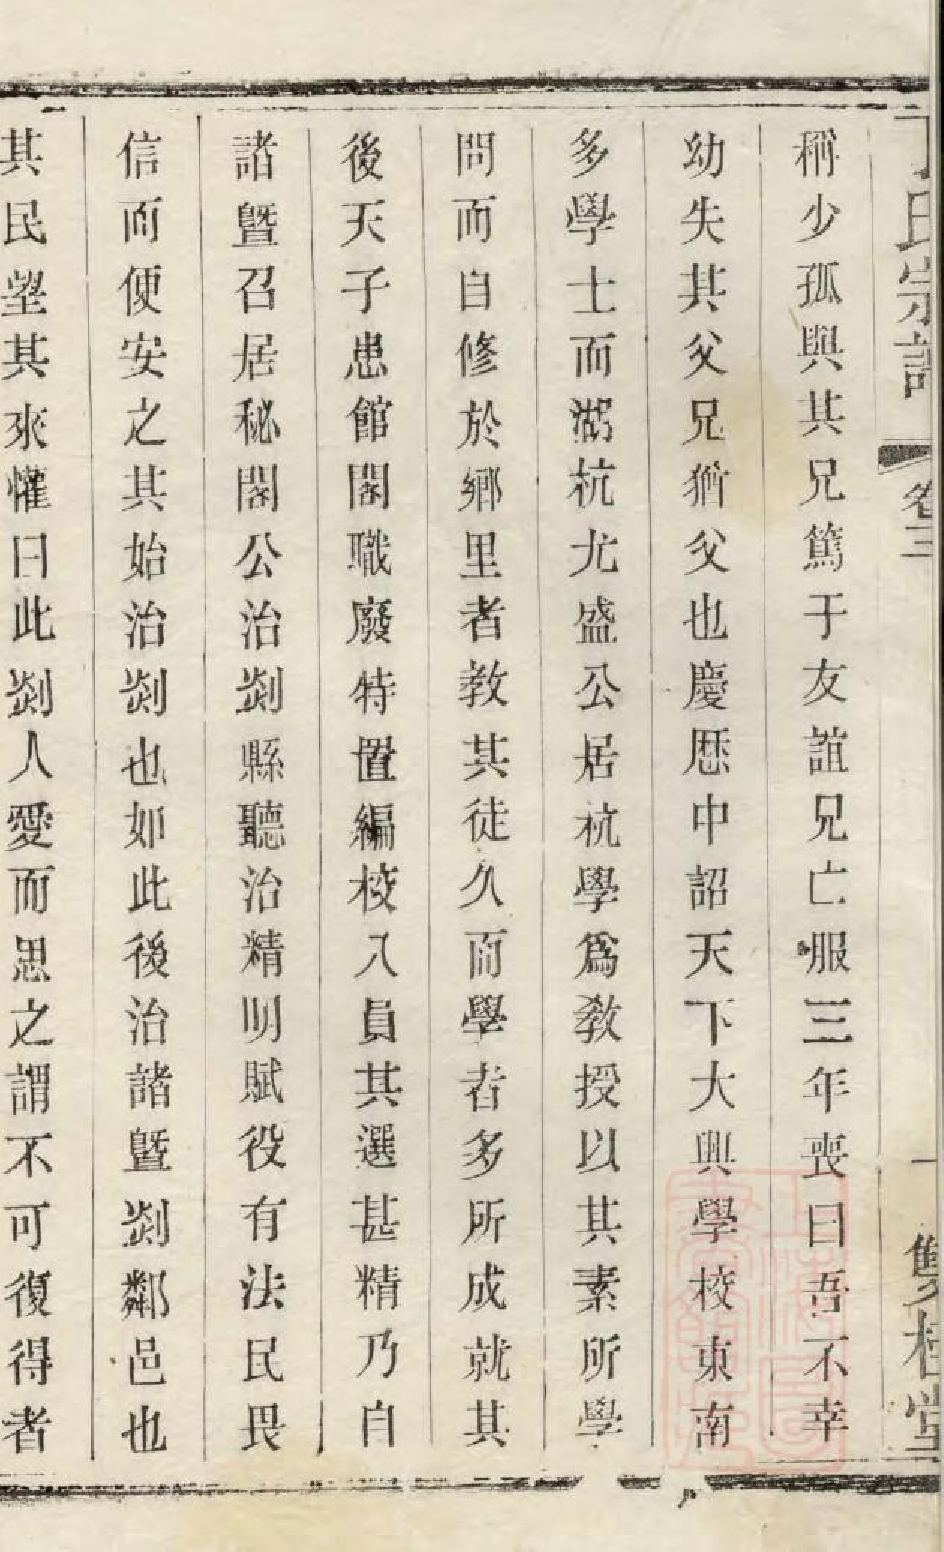 丁氏宗譜
卷三
一
雙桂堂
稱少孤與其兄篤于友誼兄亡服三年喪曰吾不幸
幼失其父兄猶父也慶厯中詔天下大興學校東南
多學士而湖杭尤盛公居杭學爲教授以其素所學
問而自修於鄉里者教其徒久而學者多所成就其
後天子患館閣職廢特置編校八員其選甚精乃自
諸暨召居秘閣公治剡縣聽治精明賦役有法民畏
信而便安之其始治剡也如此後治諸暨剡鄰邑也
其民望其來懽曰此剡人愛而思之謂不可復得者